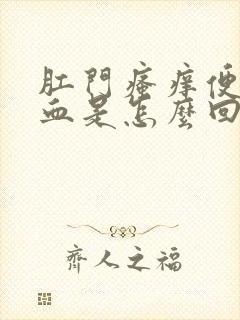 肛門瘙痒便
血是怎麼回
齊人之福